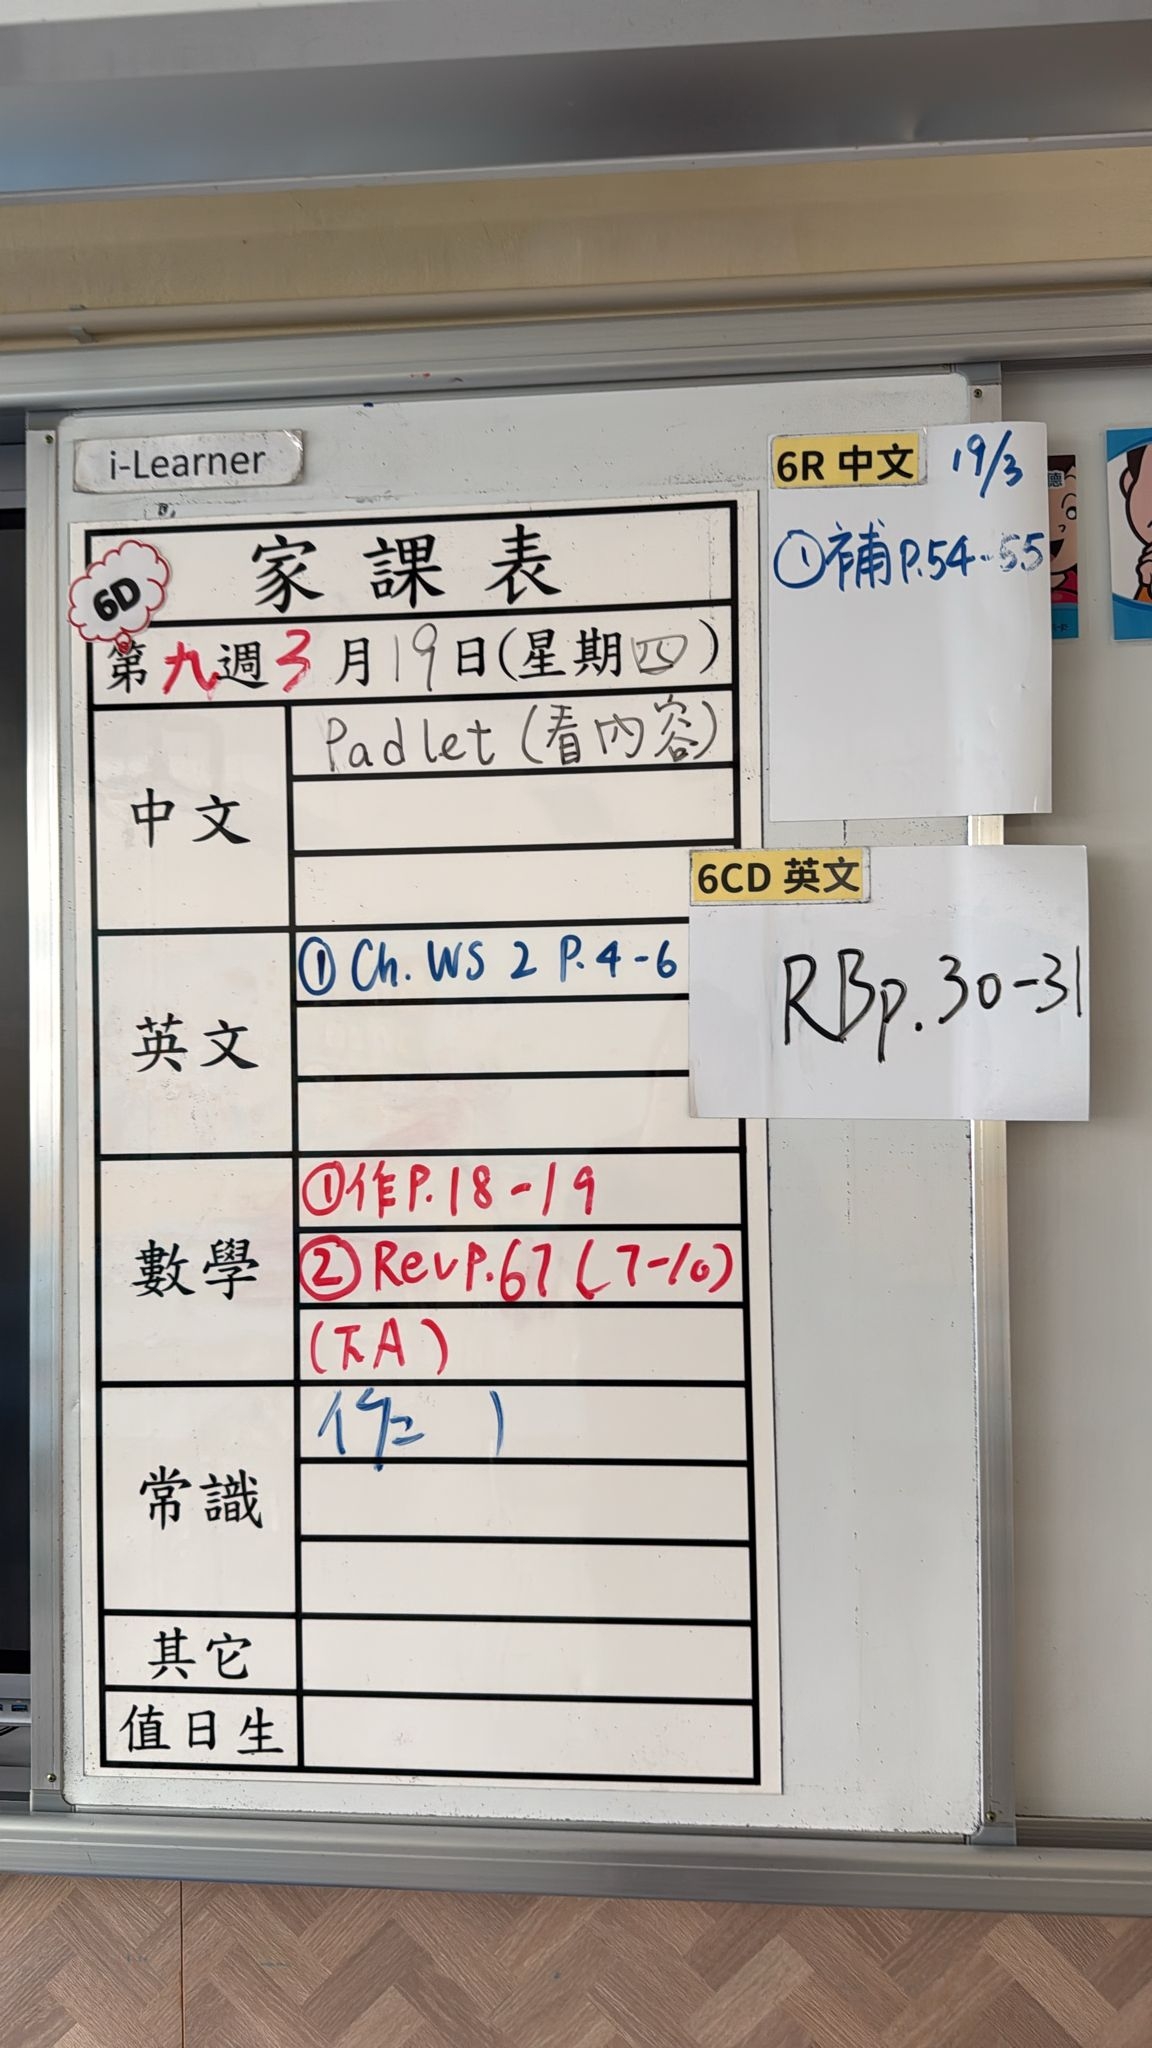 i-Learner
6D
家課表
第九週3月19日(星期四)
中文
Padlet (看內容)
英文
①Ch. WS 2 P.4-6
數學
①作P.18-19
②Rev P.67 (7-10)
常識
其它
值日生
6R 中文
19/3
①補P.54-55
6CD 英文
RBp.30-31
德